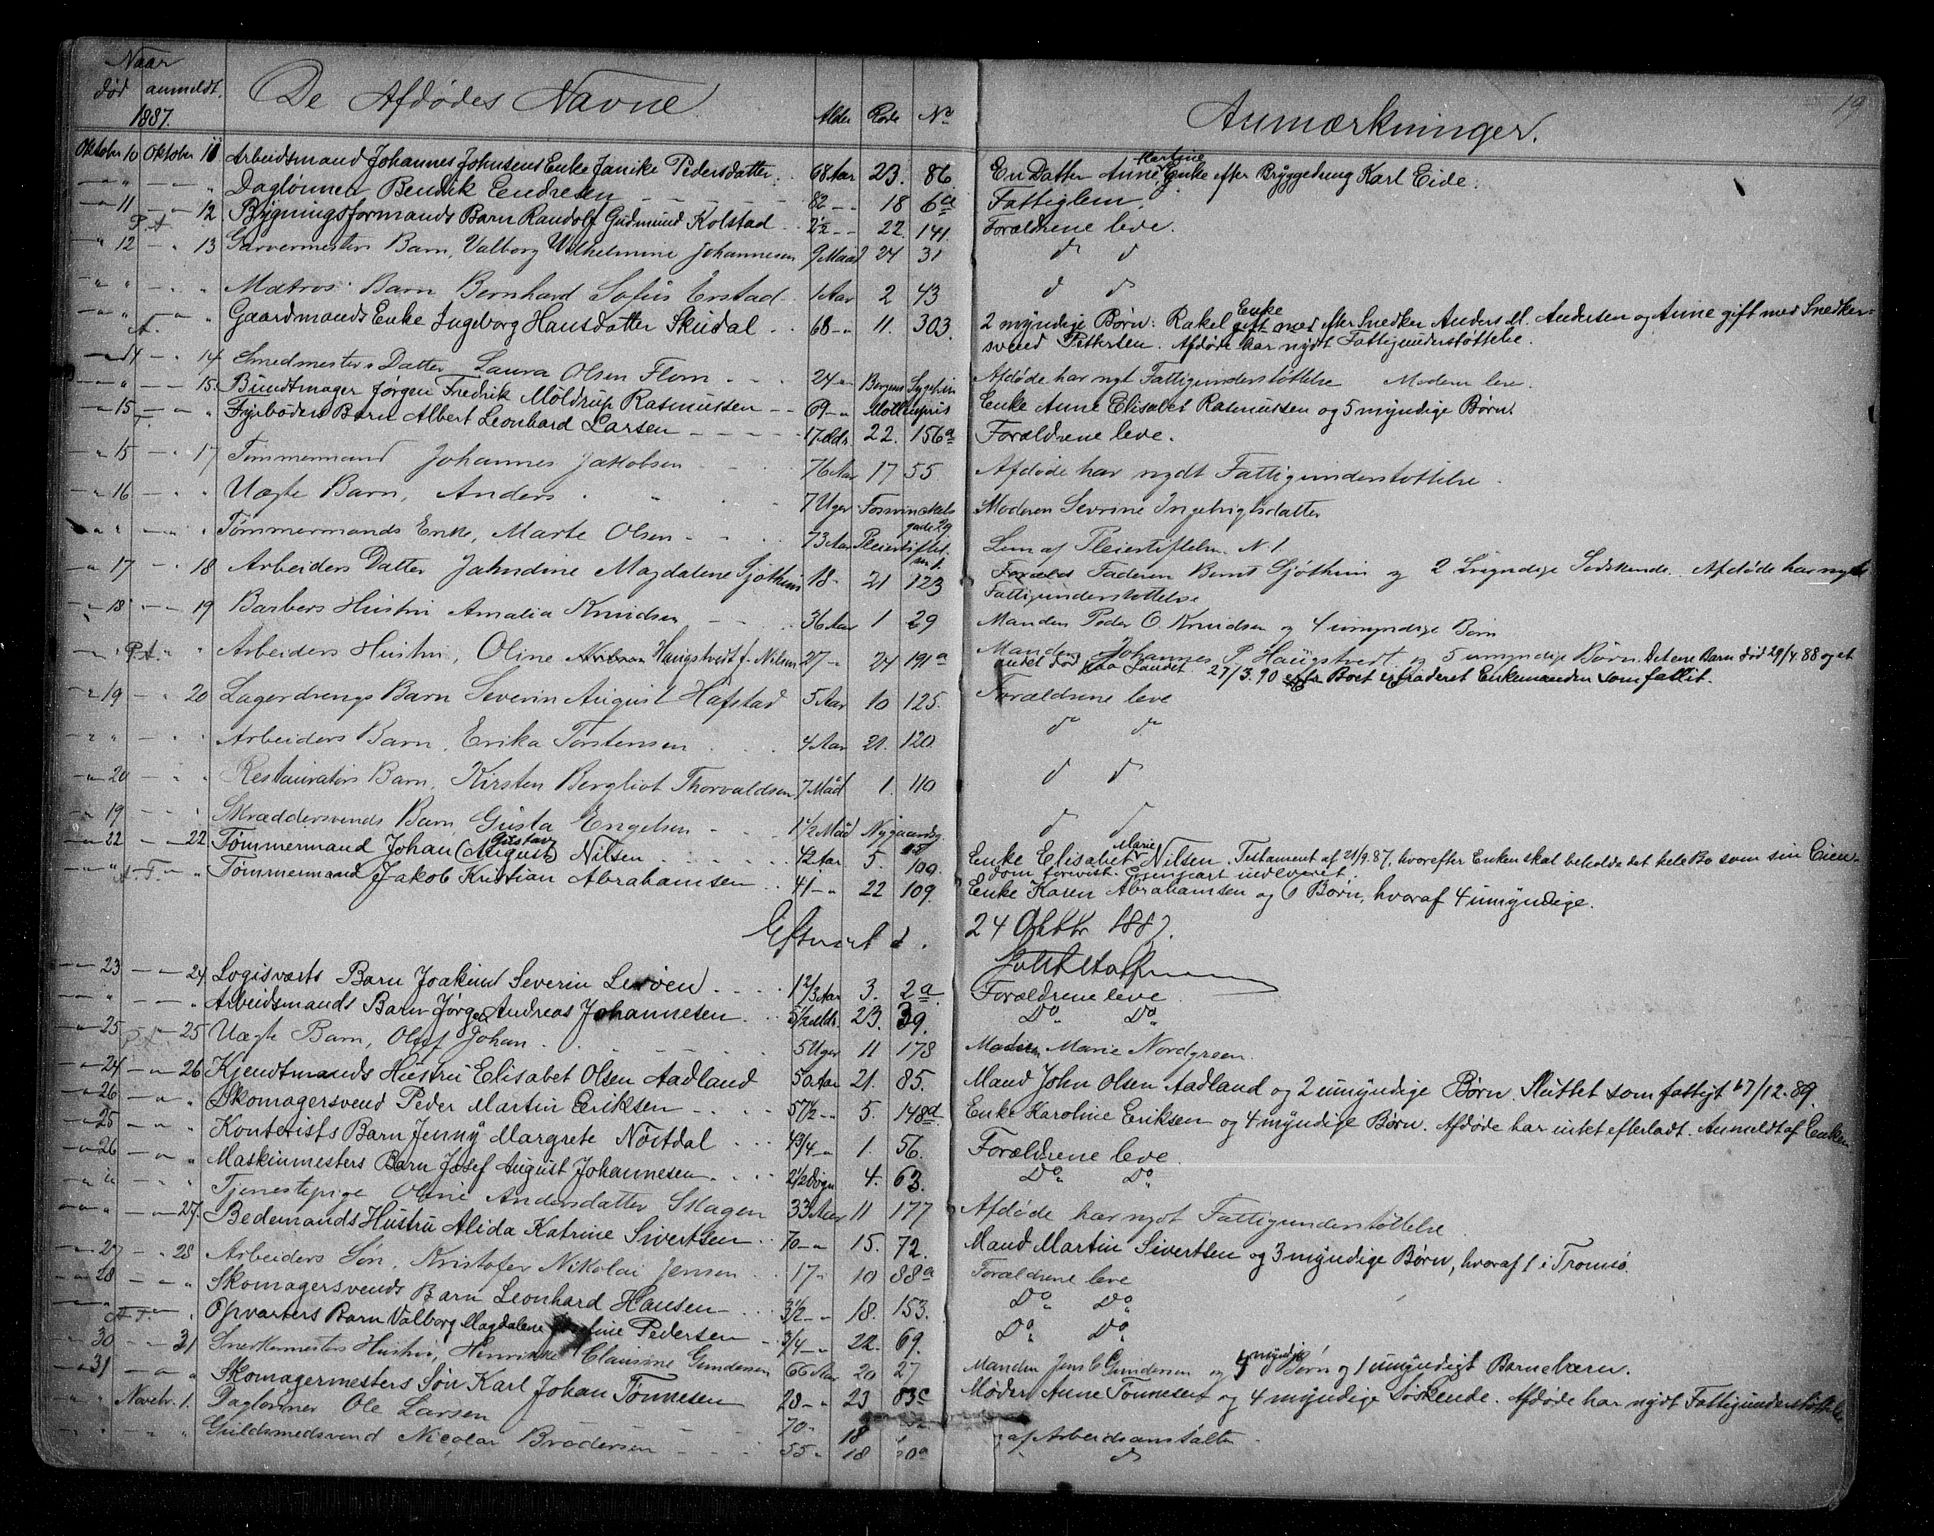 Naar De Afdødes Navne. Anmærkninger. 19
død anmeldt.
1887. Alder Rode No
Oktober 10 Oktober 11 Arbeidsmand Johannes Johnsens Enke Janike Pedersdatter. 68 Aar 23. 86 En Datter Anne Martine Enke efter Bryggedreng Karl Eide.
" — " — " Daglønner Bendik Endresen 82 — " 18 6a Fattiglem.
— " — 11 — " — 12 Bygningsformands Barn Randolf Gudmund Kolstad 2½ — " 22. 141. Forældrene leve.
P.A.
" 12 — " 13 Garvermesters Barn, Valborg Vilhelmine Johannesen 9 Maad 24 31 do do
" " — " " Matros' Barn Bernhard Sofus Erstad 1 Aar 2 43 do do
" " — " " Gaardmands Enke Ingeborg Hansdatter Skudal 68 — " 11. 303. 2 myndige Børn: Rakel Enke gift med efter Snedker Anders M. Andersen og Anne gift med Snedker-
svend Pettersen. Afdøde har nydt Fattigunderstøttelse.
— 14 Smedmesters Datter Laura Olsen Flom 24 — " Bergens Sygehus Afdøde har nydt Fattigunderstøttelse Moderen lever.
— " — 15. Bundtmager Jørgen Fredrik Møldrup Rasmussen 69 — " Møllenpris Enke Anne Elisabet Rasmussen og 5 myndige Børn.
— " 15 — " " Fyrbøders Barn Albert Leonhard Larsen 17 Mdr. 22. 156a Forældrene leve.
T.
— " 15 — " 17 Tømmermand Johannes Jakobsen 76 Aar 17 55 Afdøde har nydt Fattigunderstøttelse.
— " 16 — " " Uægte Barn, Anders 7 Uger Moderen Sevrine Ingebrigtsdatter
gade 29
— " " — " " Tømmermands Enke, Marte Olsen 73 Aar Pleiestiftels. No 1. Lem af Pleiestiftelsen N. 1
— " 17 — " 18 Arbeiders Datter Jahndine Magdalene Sjøthun 18 — 21 123 Faderen Bernt Sjøthun og 2 Umyndige Sødskende. Afdøde har nydt
Fattigunderstøttelse
— " 18 — " 19 Barbers Hustru Amalia Knudsen 36 Aar 1 29 Manden Peder O. Knudsen og 4 umyndige Børn
— " " P.A. " " Arbeiders Hustru, Oline Haugstvedt f. Nilsen 27 — " 24 191a Manden Johannes P. Haugstvedt og 5 umyndige Børn. Det ene Barn død 29/4 88 og et
andet død paa Landet 27/3. 90 Boet Enkemanden som fattig.
— " 19 — " 20 Lagerdrengs Barn Severin August Hafstad 5 Aar 10 125. Forældrene leve
— " " — " " Arbeiders Barn, Erika Torstensen 4 Aar 21. 120 do do
— " 20 — " " Restauratørs Barn, Kirsten Bergliot Thorvaldsen 7 Måd 1. 110 do do
— " 19 — " " Skræddersvends Barn, Gusta Engelsen 1½ Måd Nygaardsg. do do
— " 22 — " 22 Tømmermand Johan (August) Gustav Nilsen 42 Aar 5 109. Enke Elisabet Marie Nilsen. Testament af 21/9. 87, hvorefter Enken skal beholde det hele Bo som sin Eien-
dom forevist. Gjenpart indleveret.
— " " A.T. — " " Tømmermand Jakob Kristian Abrahamsen 41 — " 22 109. Enke Karen Abrahamsen og 6 Børn, hvoraf 4 umyndige.
Efterset d. 24 Oktbr 1887.
— " 23 — " 24 Logisværts Barn Joakim Severin 1 2/3 Aar 3. 2a. Forældrene leve.
— " " — " " Arbeidsmands Barn Jørgen Andreas Johannesen 5½ Mdr. 23. 39. Do. Do.
— " 25 P.A. 25 Uægte Barn, Oluf Johan 5 Uger 11 178 Moderen Marie Nordgreen.
— " 24 — " 26 Kjendtmands Hustru Elisabet Olsen Aadland 50 Aar 21. 85. Mand John Olsen Aadland og 2 umyndige Børn. Sluttet som fattigt 17/12. 89.
— " 26 — " " Skomagersvend Peder Martin Eriksen 57½ — " 5. 148d Enke Karoline Eriksen og 4 myndige Børn. Afdøde har intet efterladt. Anmeldt af Enken
— " 25 — " " Kontorists Barn Jenny Margrete Nøstdal 4 3/4 — " 1. 56. Forældrene leve.
— " 26 — " " Maskinmesters Barn Josef August Johannesen 2½ Døgn 4. 63. Do. Do.
— " " — " " Tjenestepige Oline Andersdatter Skagen 33 Aar 11 177 Afdøde har nydt Fattigunderstøttelse
— " " — " 27. Bedemands Hustru Alida Katrine Sivertsen 70 — " 15. 72. Mand Martin Sivertsen og 3 myndige Børn, hvoraf 1 i Tromsø.
— " 27 — " 28 Arbeiders Søn, Kristofer Nikolai Jensen 17 " 10 88a Forældrene leve
— " 28 — " " Skomagersvends Barn Leonhard Hansen 3½ — " 18. 153. Do. Do.
— " A.T. — " Opvarters Barn Valborg Magdalene Josefine Pedersen 3/4 — " 22. 69. Do. Do.
— " 30 — " 31 Snedkermesters Hustru, Henrikke Clausine Gundersen 66 Aar 20 27 Manden Jens C. Gundersen og 4 myndige Børn og 1 umyndigt Barnebarn.
— " 31 — " " Skomagermesters Søn Karl Johan Tønnesen 28 — " 23 83c Moder Anne Tønnesen og 4 myndige Søskende. Afdøde har nydt Fattigunderstøttelse
" " Novebr. 1. Dagløner Ole Larsen 70 " 18 af Arbeidsanstalten
" " " " Guldsmedsvend Nicolai Brodersen 55 " 18 do